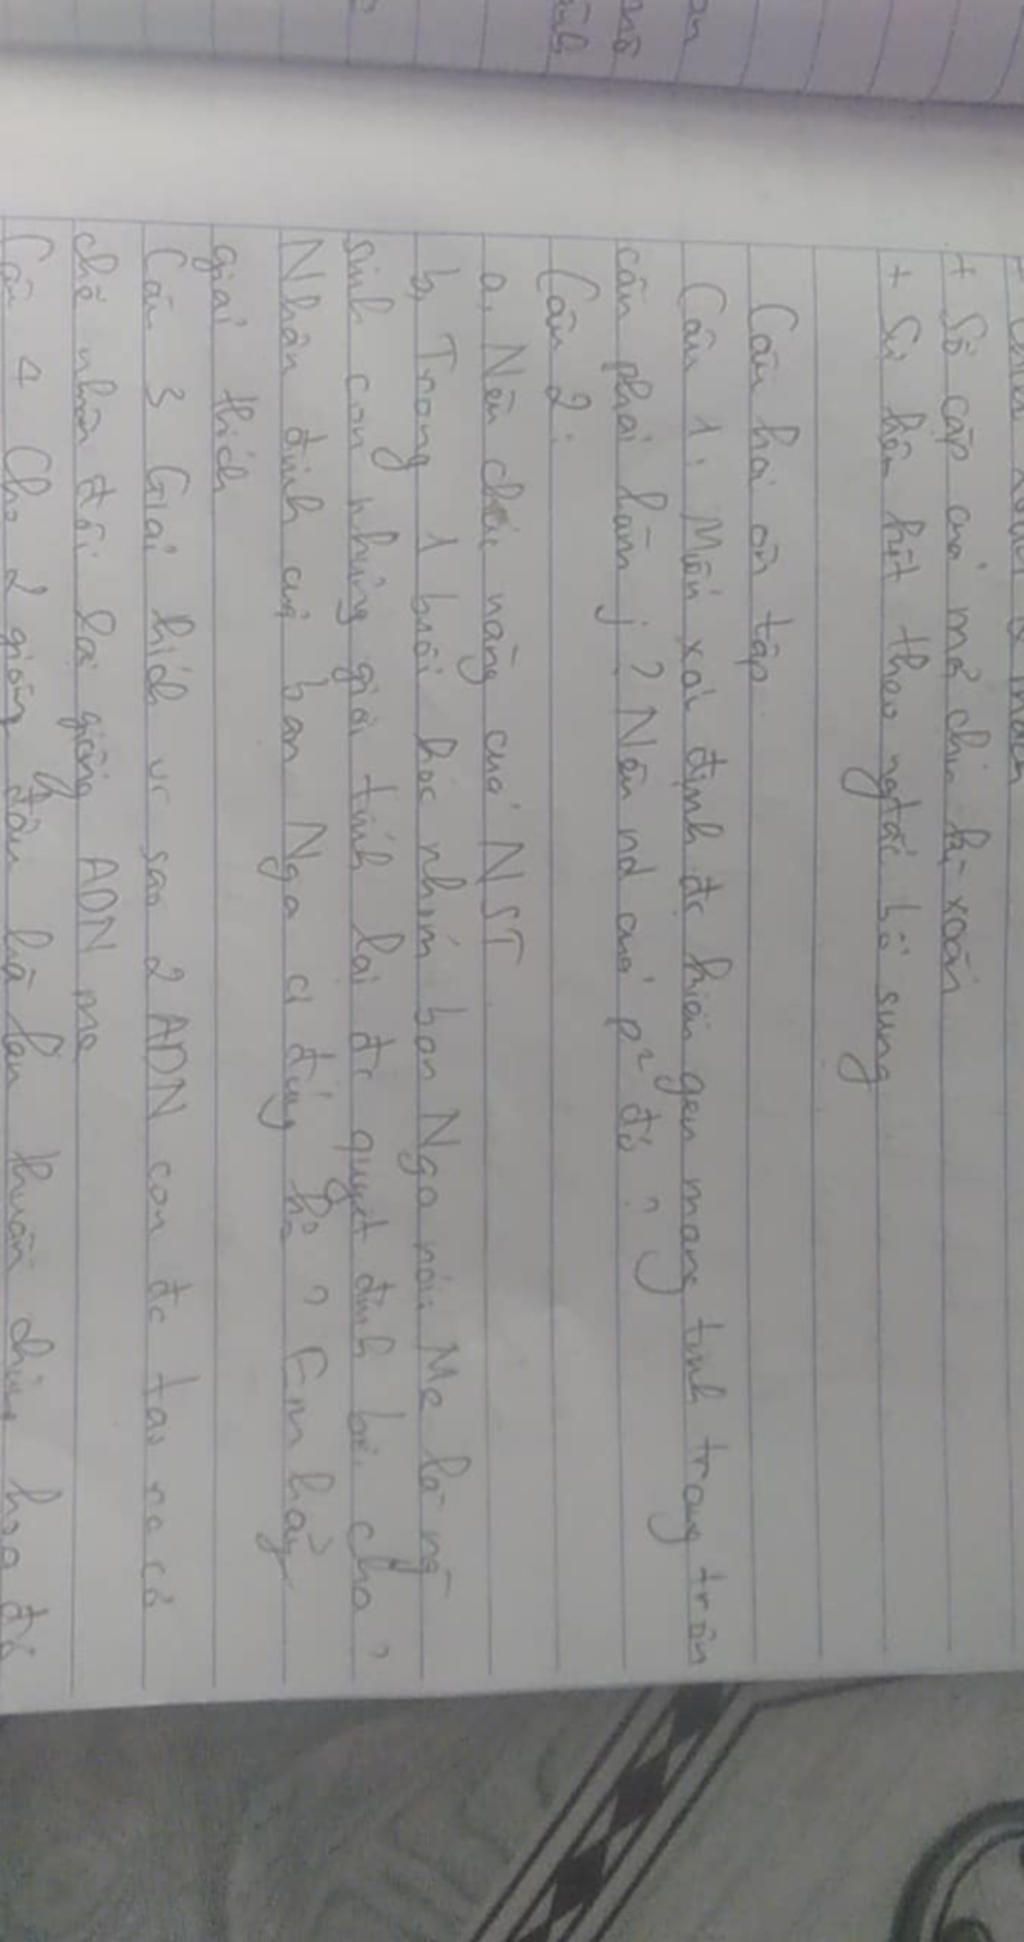 + Số cặp của mỗi chu kì xoắn
+ Sự liên kết theo ngtắc bổ sung
Câu hỏi ôn tập
Câu 1: Muốn xác định đc kiểu gen mang tính trạng trên
cần phải làm j? Nêu nd của p² đó?
Câu 2:
a, Nêu chức năng của NST
b, Trong 1 buổi học nhóm bạn Nga nói: Mẹ là ng
sinh con nhưng giới tính lại đc quyết định bởi cha?
Nhận định của bạn Nga có đúng ko? Em hãy
giải thích
Câu 3 Giải thích vì sao 2 ADN con đc tạo ra cơ
chế nhân đôi lại giống ADN mẹ
Câu 4 Cho 2 giống đậu hà lan thuần chủng hoa đỏ